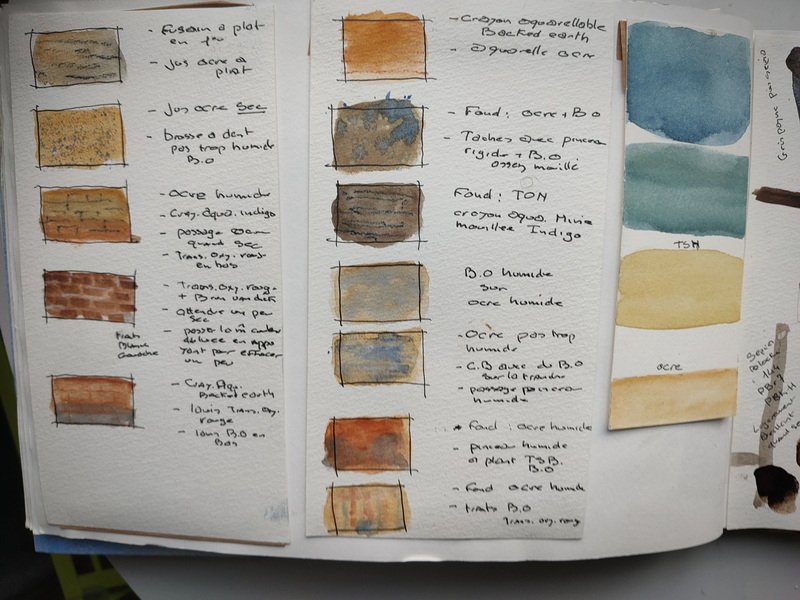 - Fusain à plat
en 1er
- jus ocre à
plat
- Jus ocre sec
- brosse à dent
pas trop humide
B.O
- Ocre humide
- Cray. Aqu. indigo
- passage
quand sec
- Trans. Oxy. rouge
en bas
- Trans. Oxy. rouge
+ Brun van dick
- attendre un peu
sec
- passer la
tout pour effacer
un peu
traits
Blanc
Gouache
- Cray. Aqu.
Backed earth
- lavis Trans. Oxy.
rouge
- lavis B.O en
Bas
- Crayon aquarellable
Backed earth
- aquarelle ocre
- Fond : ocre + B.O
- Taches avec pinceau
rigide + B.O
assez mouillé
Fond : TON
crayon aqua. Mine
mouillée Indigo
B.O humide
sur
ocre humide
- Ocre pas trop
humide
- C.B avec du B.O
sur la tranche
- passage pinceau
humide
- Fond : ocre humide
- pinceau humide
à plat TSB.
B.O
- Fond ocre humide
- traits B.O
Trans. oxy. rouge
TSN
ocre
Sepia